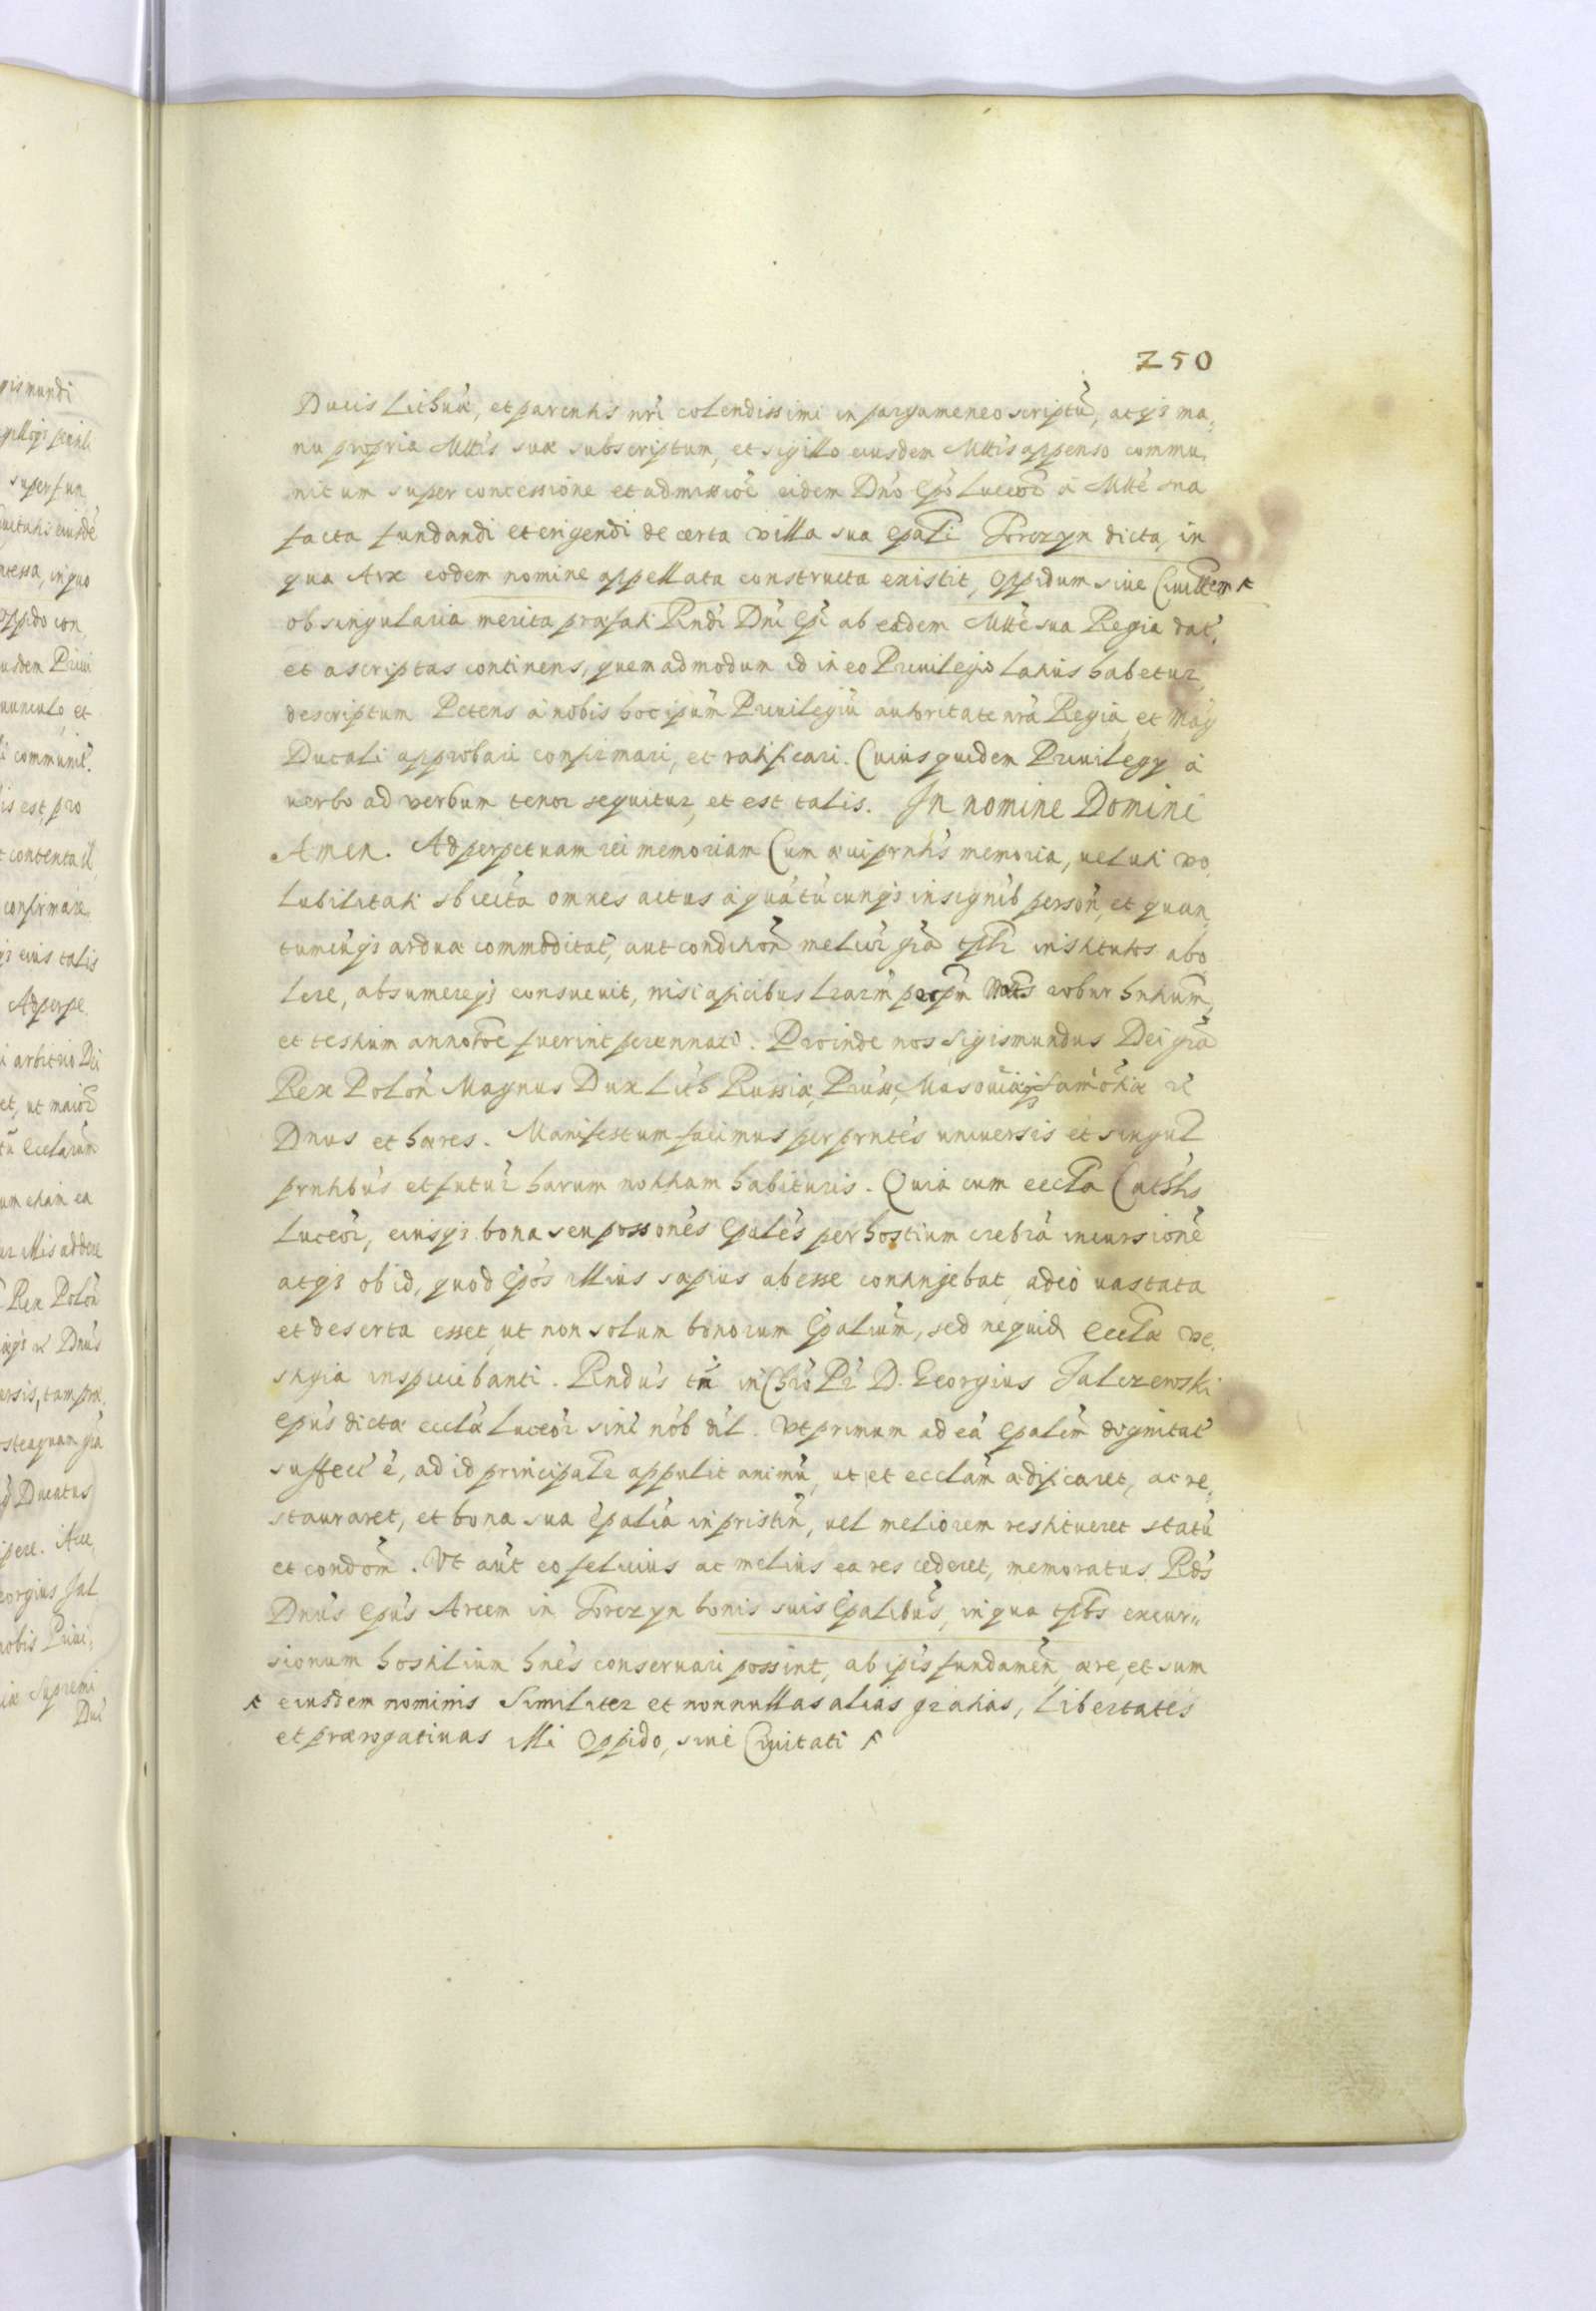 250
Ducis Lithuã, et parentis nr̃i colendissimi in pargameneo scriptũ, atqз ma,
nu propria Mttis suæ subscriptum, et sigillo eiusdem Mttis appenso commu,
nitum super concessione et admissiõe eidem Dnõ Epõ Luceoȓ à Mttẽ sua
facta fundandi et erigendi de certa villa sua epãli Torczyn dicta, in
qua Arx eodem nomine appellata constructa existit, oppidum siue Ciuittem
ob singularia merita præfati Rndi Dni Epi ab eadem Mttẽ sua Regia dat̃,
et ascriptas continens, quemadmodum id in eo Priuilegio latius habetur
descriptum Petens à nobis hoc ipũm Priuilegiũ autoritate nr̃a Regia et Mag
Ducali approbari confirmari, et ratificari. Cuius quidem Priuilegy à
uerbo ad verbum tenor sequitur, et est talis. In nomine Domini
Amen. Ad perpetuam rei memoriam Cum æui prntis memoria, ueluti vo,
lubilitati sbiecta omnes actus a quãtũcunqз insignib personñ, et quan
tumcũqз ardua commoditat̃, aut condition̄ melior gr̃a institutos abo
lere, absumereqз consueuit, nisi apicibus lrarm̃ robur hntium,
et testium annotõe fuerint perennati. Proinde nos Sigismundus Dei grã
Rex Polon̄ Magnus Dux Lith Russiæ, Pruss, Masouiæqз Samotiæ
Dnus et hæres. Manifestum facimus per prntes uniuersis et singul
prntibus et futur harum notitiam habituris. Quia cum eccla Cathts
Luceor, eiusqз bona seu possones Epales per hostium crebrã incursionẽ
atqз ob id, quod Epos illius sæpius abesse contingebat, adeo uastata
et deserta esset, ut non solum bonorum Epalium, sed nequid Ecclæ ve,
stigia inspiciebanti. Rndus tñ in Chro Pr D. Georgius Falczewski
epus dictæ ecclæ Luceor sinc nob dil. Vt primum ad eã Epalem dignitat
suffect ẽ, ad id principalr appulit animũ, ut et ecclam ædificaret, ac re,
stauraret, et bona sua Epalia in pristin, uel meliorem restitueret statũ
et condom. Vt aut eo felicius ac melius ea res cederet, memoratus Rds
Dnus epus Arcem in Torczyn bonis suis Epalibus, in qua excur,,
sionum hostilium hnes conseruari possint, ab ipis fundamen, ære, et sum
eiusdem nominis Similiter et nonnullas alias gratias, Libertates
et prærogatiuas illi Oppido, siue Ciuitati